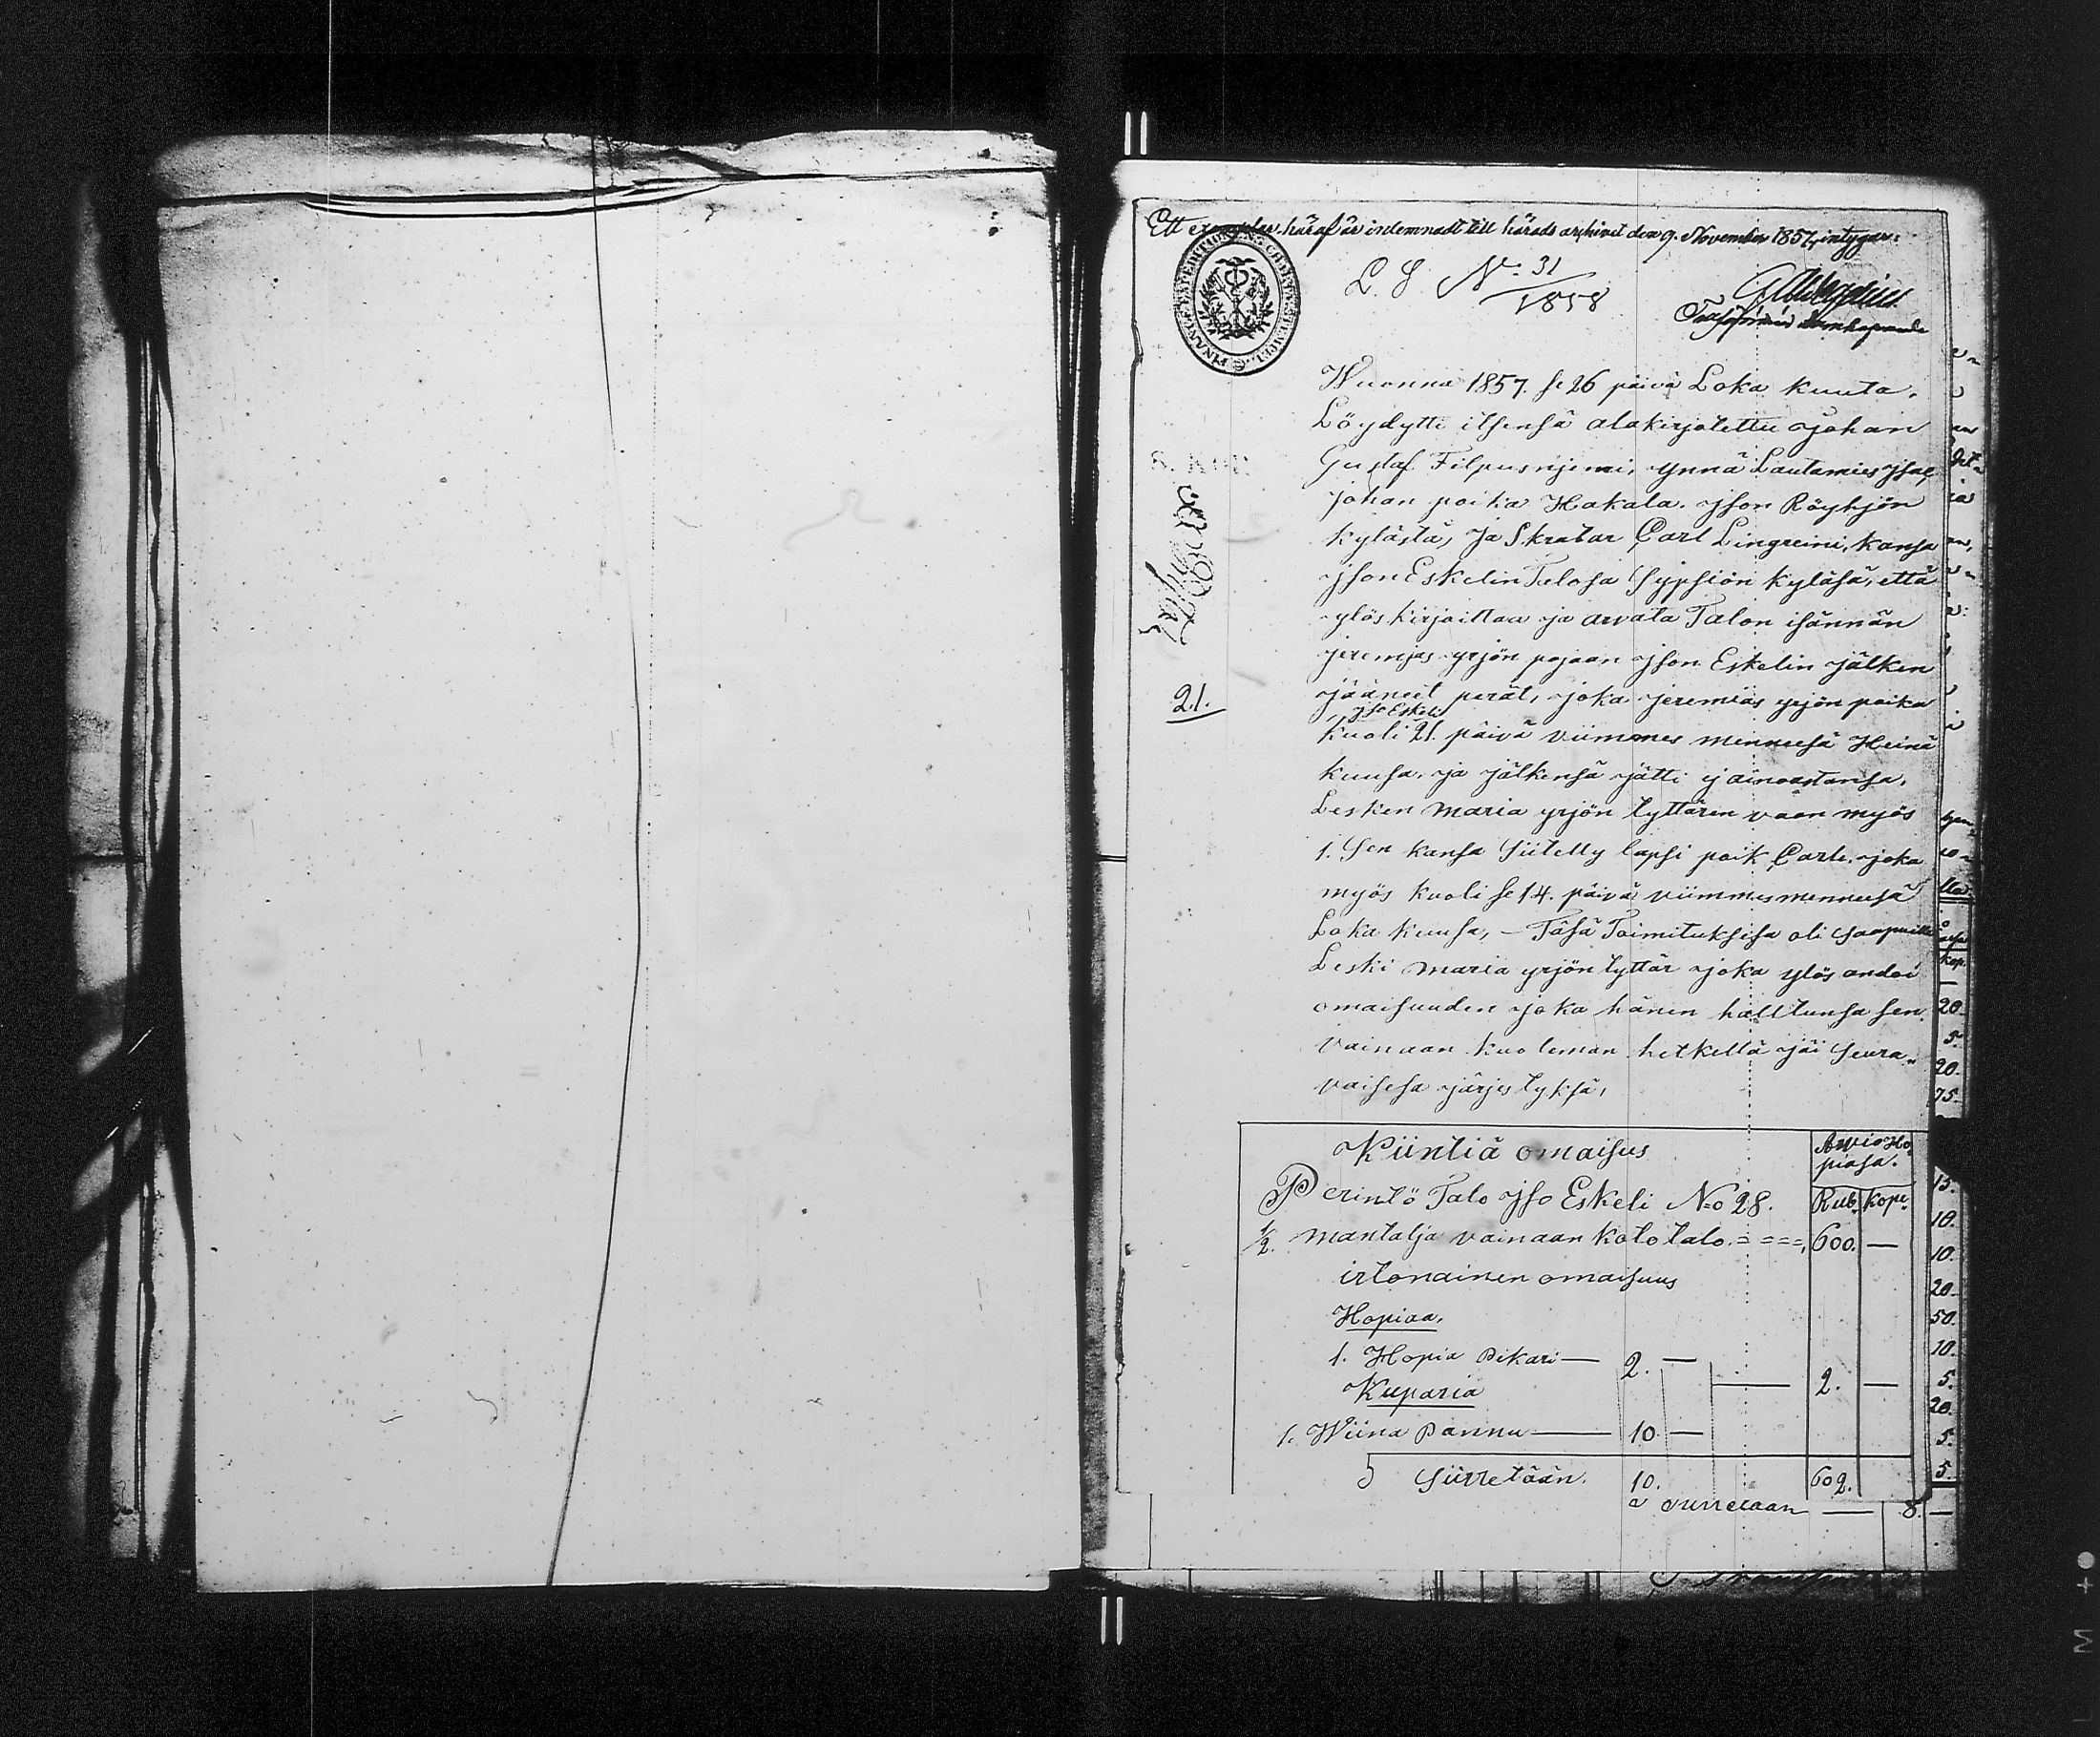 Ett exemplar häraf är inlemnadt till härads arkivet den 9. November 1857, intygar:
L. S. No: 31
1858
Wuonna 1857. se 26 päivä Loka kuuta.
Löydytti itsensä alakirjotettu Johan
Gustaf Filpusnjemi, ynnä Lautamies Jsac
Johan poika Hakala. Json Röyhjön
kylästä, Ja Skratar Carl Lingreini, kansa
Json Eskelin Talosa Sypsiön kyläsä, että
ylöskirjoittaa ja arvata Talon isännän
jeremjas yrjön pojaan Json Eskelin jälken
jääneet perät, joka jeremias yrjön poika
Jso Eskeli
21.
kuoli 21. päivä viimmes menneesä Heinä
kuusa. ja jälkensä jätti ej ainoastansa,
Lesken Maria yrjön tyttären vaan myös
1. Sen kansa Siitetty lapsi poik Carle. joka
myös kuoli se 14. päivä viimmesmenneesä
Loka kuusa, – Täsä Toimituksesa oli saapuilla
Leski Maria yrjön tyttär joka ylös andoi
omaisuuden joka hänen halltunsa sen
vainaan kuoleman hetkellä jäi Seura-
vaisesa järjestyksä,
Kiintiä omaisus
Arvio Ho
piasa.
Perintö Talo Jso Eskeli No 28.
Rub. kope.
1/2. mantalja vainaan koto talo. = = = =, 600. —
irtonainen omaisuus
Hopiaa.
1. Hopia Pikari — 2. — 2. —
Kuparia
1. Wiina Pannu — 10 —
Siirretään. 10. 602.
8. —